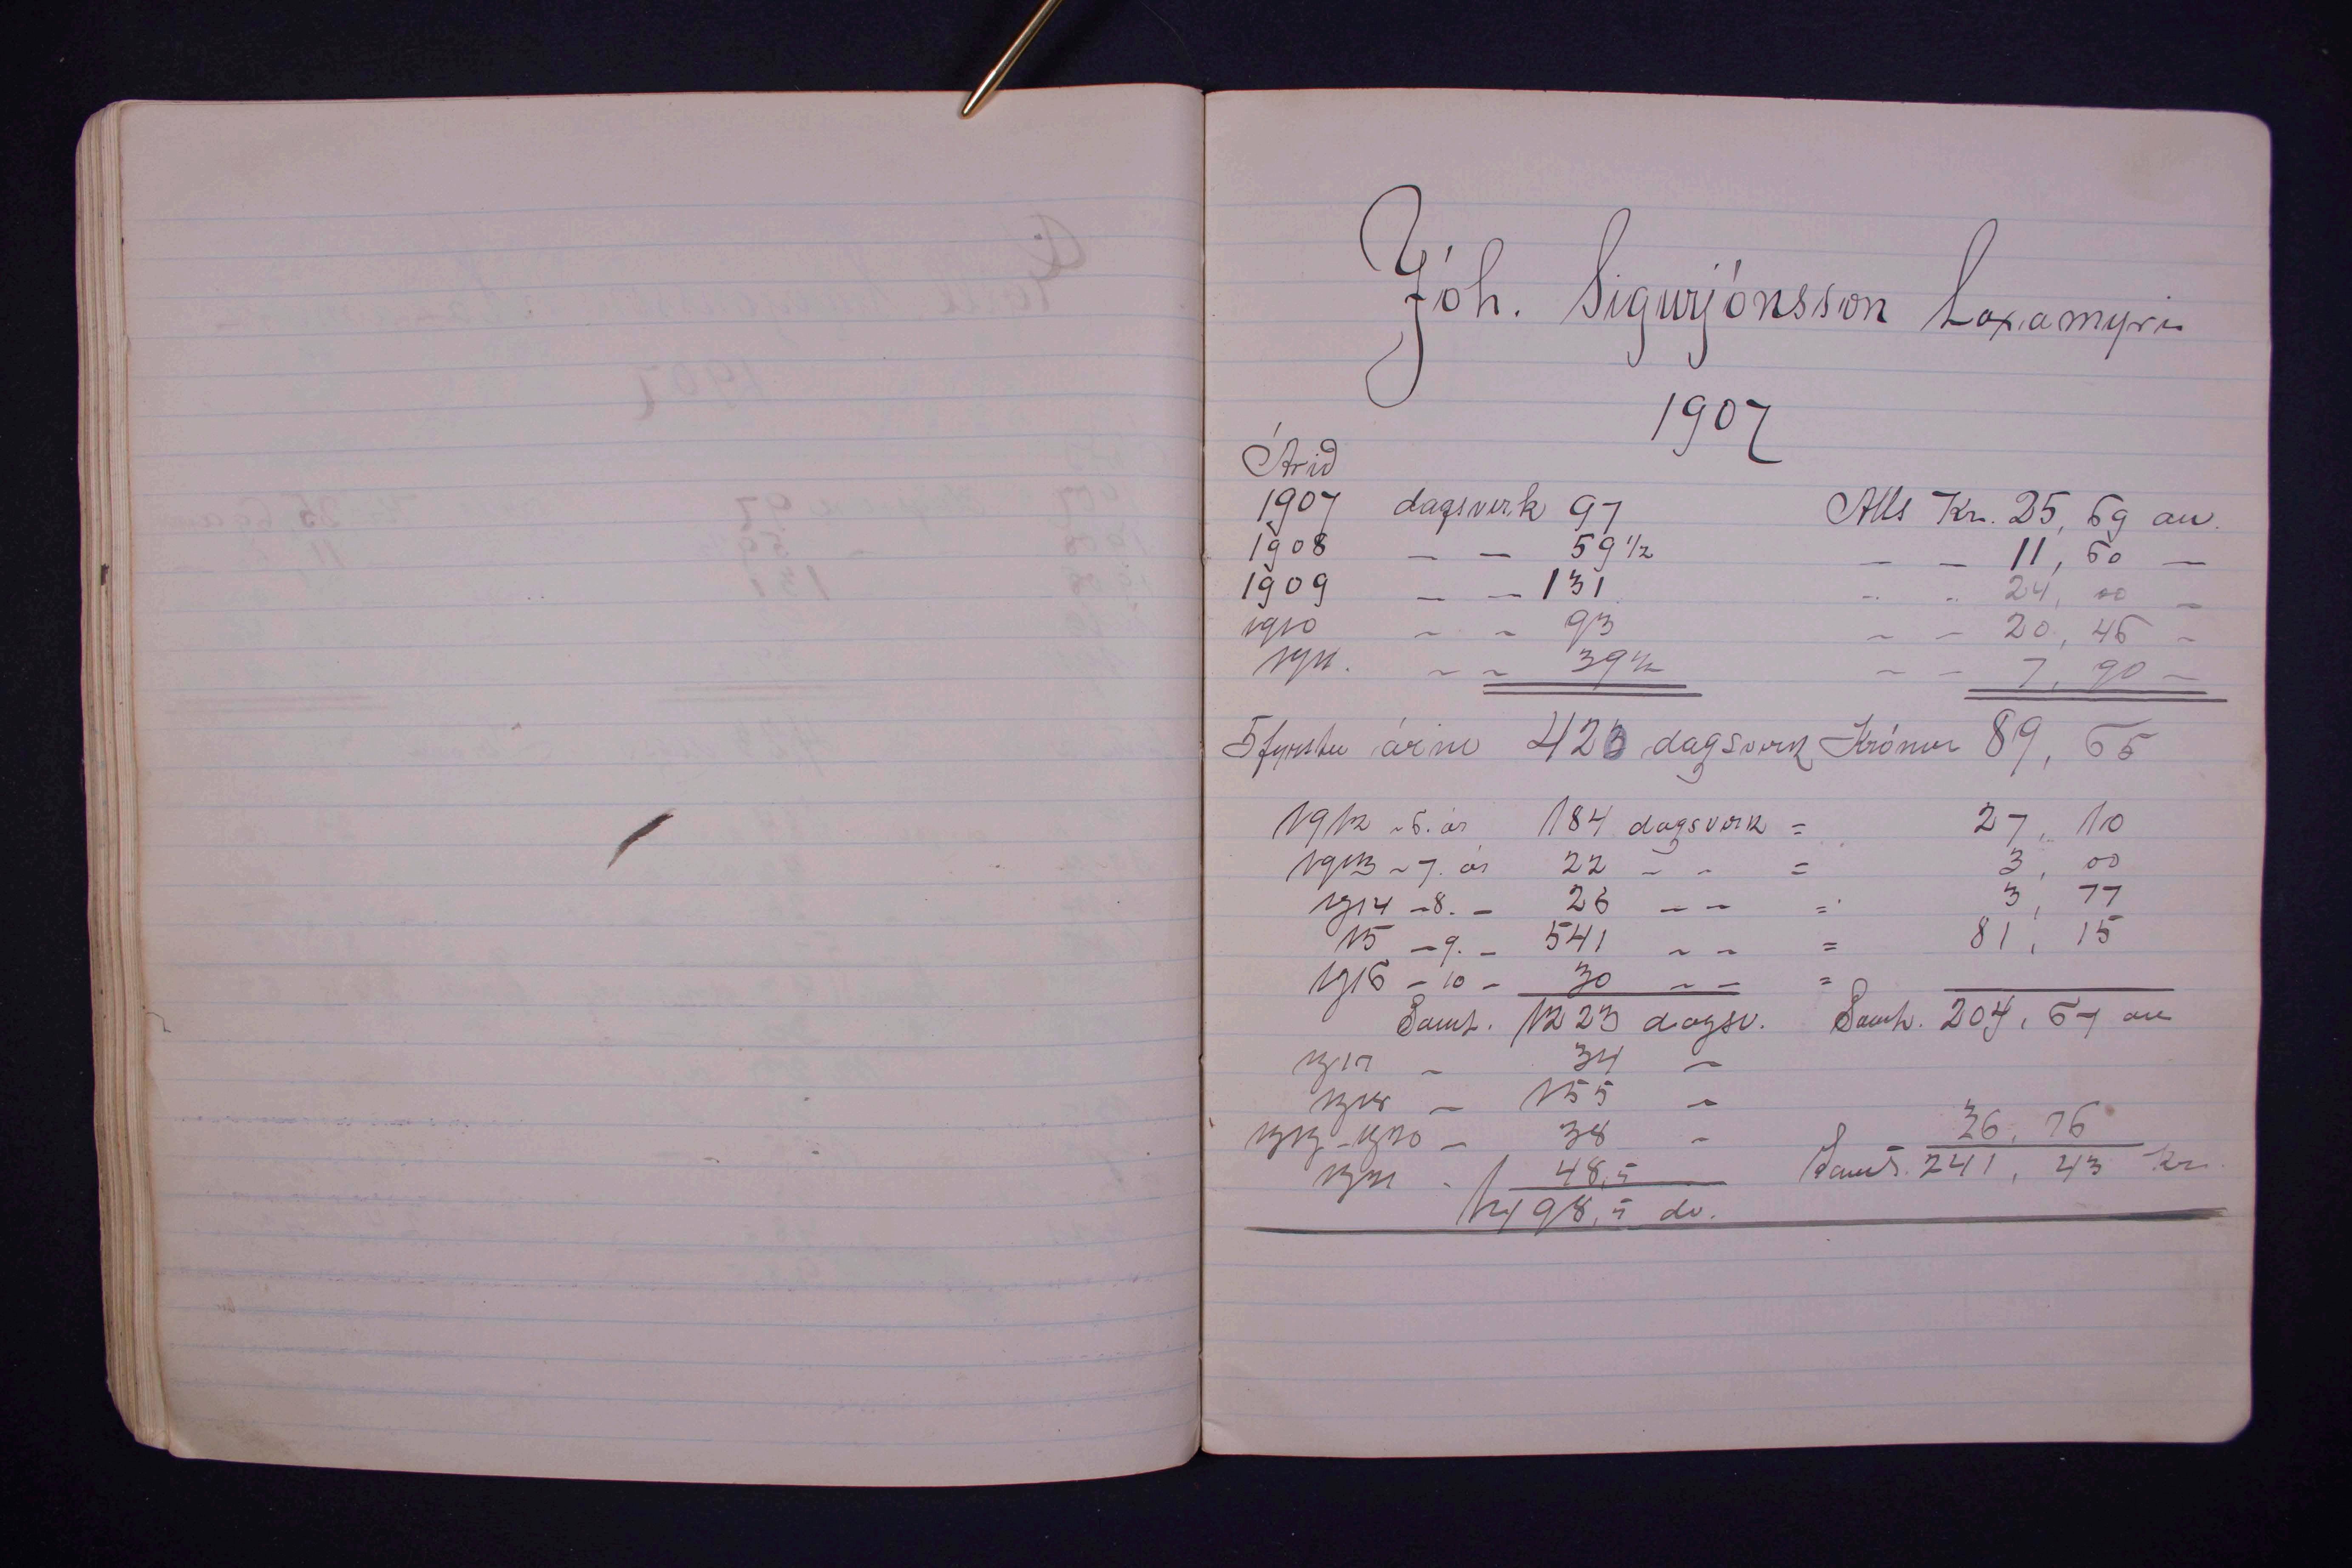 Jóh. Sigurjónsson Laxamýri
1907
Árið
1907 dagsverk 97 Alls Kr. 25, 69 au.
1908 — — 59 1/2 — — 11, 60 —
1909 — — 131 — — 24, 00 —
1910 — — 93 — — 20, 46 —
1911. — — 39 1/2 — — 7, 90 —
5 fyrstu árin 423 dagsverk Krónur 89, 65
1912 - 6. ár 184 dagsverk = 27, 10
1913 - 7. ár 22 — — = 3, 00
1914 - 8. — 26 — — = 3, 77
15 - 9. — 541 — — = 81, 15
1916 - 10 — 30 — — =
Samt. 1223 dagsv. Samt. 204, 67 au
1917 — 34 —
1918 — 155 —
1919 - 1920 — 38 — 36, 76
1921 - 48,5 Samt. 241, 43 Kr.
1498,5 dv.